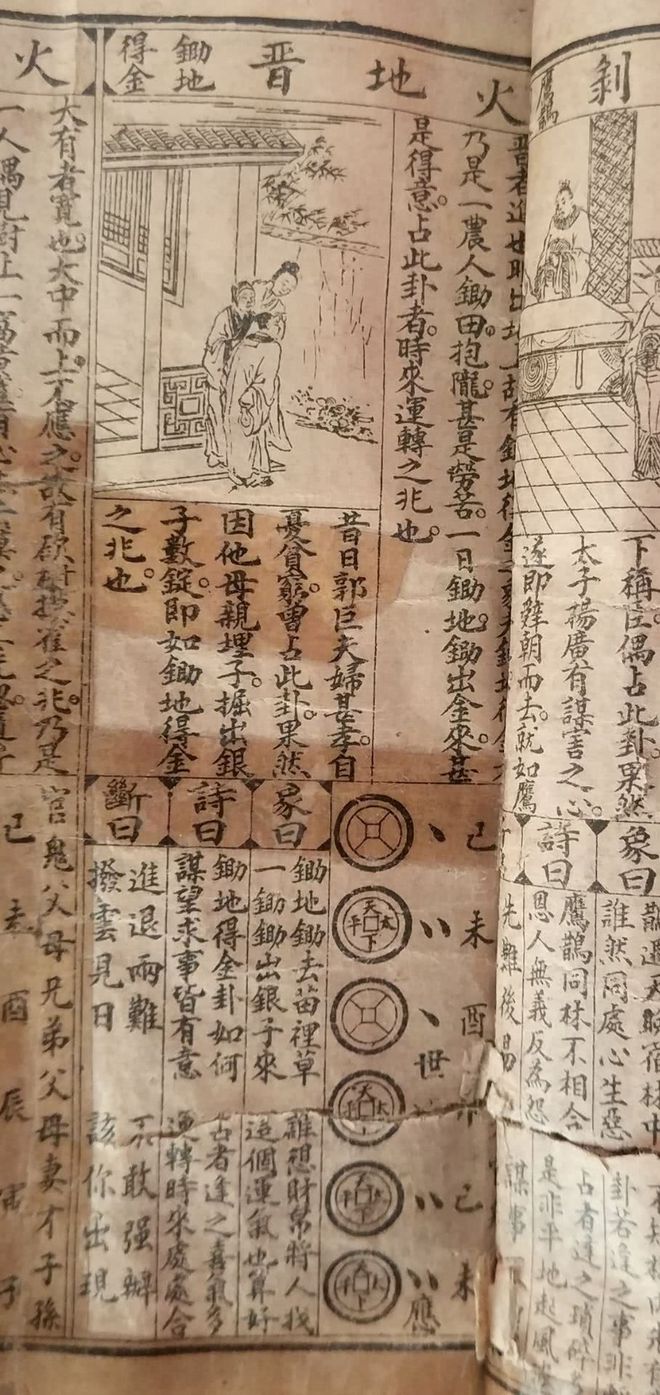 剝
鷹鵲
下稱臣偶占此卦果然
太子楊廣有謀害之心
遂即辭朝而去就如鷹
象曰
詩曰
誰然同處心生惡
鷹鵲同林不相合
恩人無義反為怨
卦若逢之事非
占者逢之瑣碎
是非平地起風波
先難後易
謀事
火地晉
鋤地得金
乃是一農人鋤田抱隴甚是勞苦一日鋤地鋤出金來甚
是得意占此卦者時來運轉之兆也
昔日郭巨夫婦甚孝自
憂貧窮曾占此卦果然
因他母親埋子掘出銀
子數錠即如鋤地得金
之兆也
己
未
酉 世
己
未 應
天下太平
象曰
鋤地鋤去苗裡草
一鋤鋤出銀子來
誰想財帛將人找
這個運氣也算好
詩曰
鋤地得金卦如何
謀望求事皆有意
占者逢之喜氣多
運轉時來處處合
斷曰
進退兩難 不敢強辦
撥雲見日 該你出現
火
大有者寬也大中而上下應之故有砍樹摸雀之兆乃是
官鬼父母兄弟父母妻才子孫
己
酉
辰
寅
子